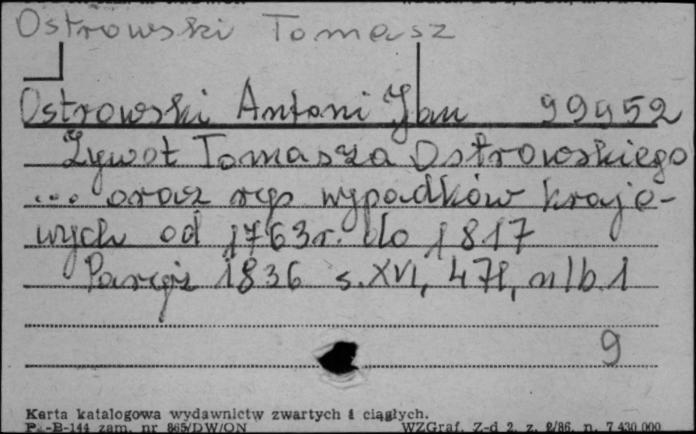 Ostrowski Tomasz
Ostrowski Antoni Jan 99952
Żywot Tomasza Ostrowskiego
... oraz rys wypadków krajo-
wych od 1763r. do 1817
Paryż 1836 s. XVI, 471, nlb. 1
9
Karta katalogowa wydawnictw zwartych i ciągłych.
Pu-B-144 zam. nr 865/DW/ON WZGraf. Z-d 2, z. 2/86, n. 7 430 000